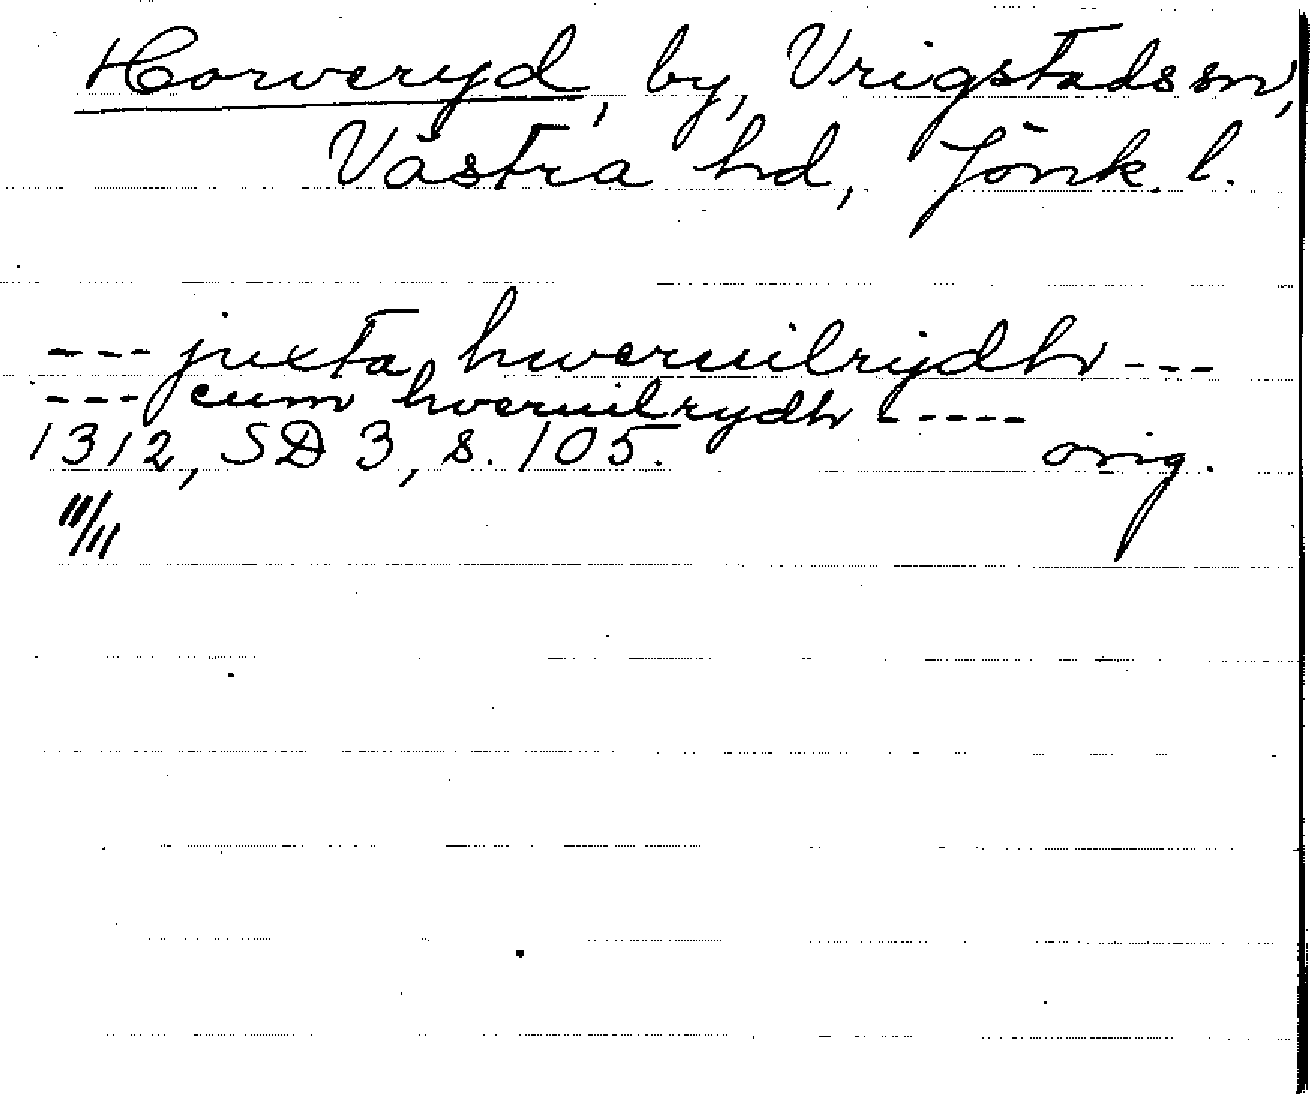 Horveryd, by, Vrigstads sn,
Västra hd, Jönk. l.
--- juxta hweruilrydh ---
--- cum hveruilrydh -----
1312, SD 3, s. 105. orig.
11/11